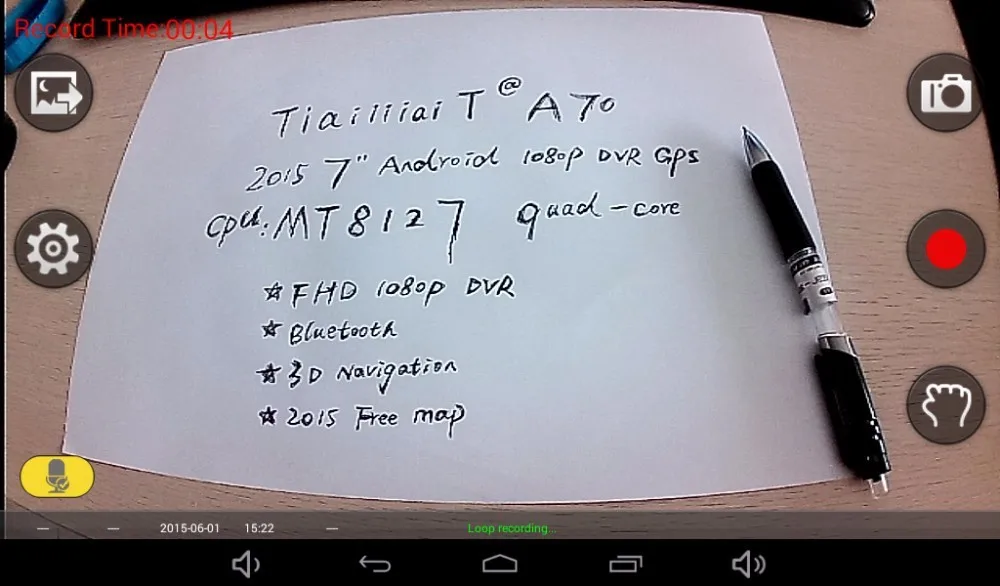 Record Time:00:04
Tiailiiai T @ A70
2015 7" Android 1080P DVR GPS
CPU: MT8127 quad-core
☆ FHD 1080p DVR
☆ Bluetooth
☆ 3D Navigation
☆ 2015 Free map
--- --- 2015-06-01 15:22 --- Loop recording...